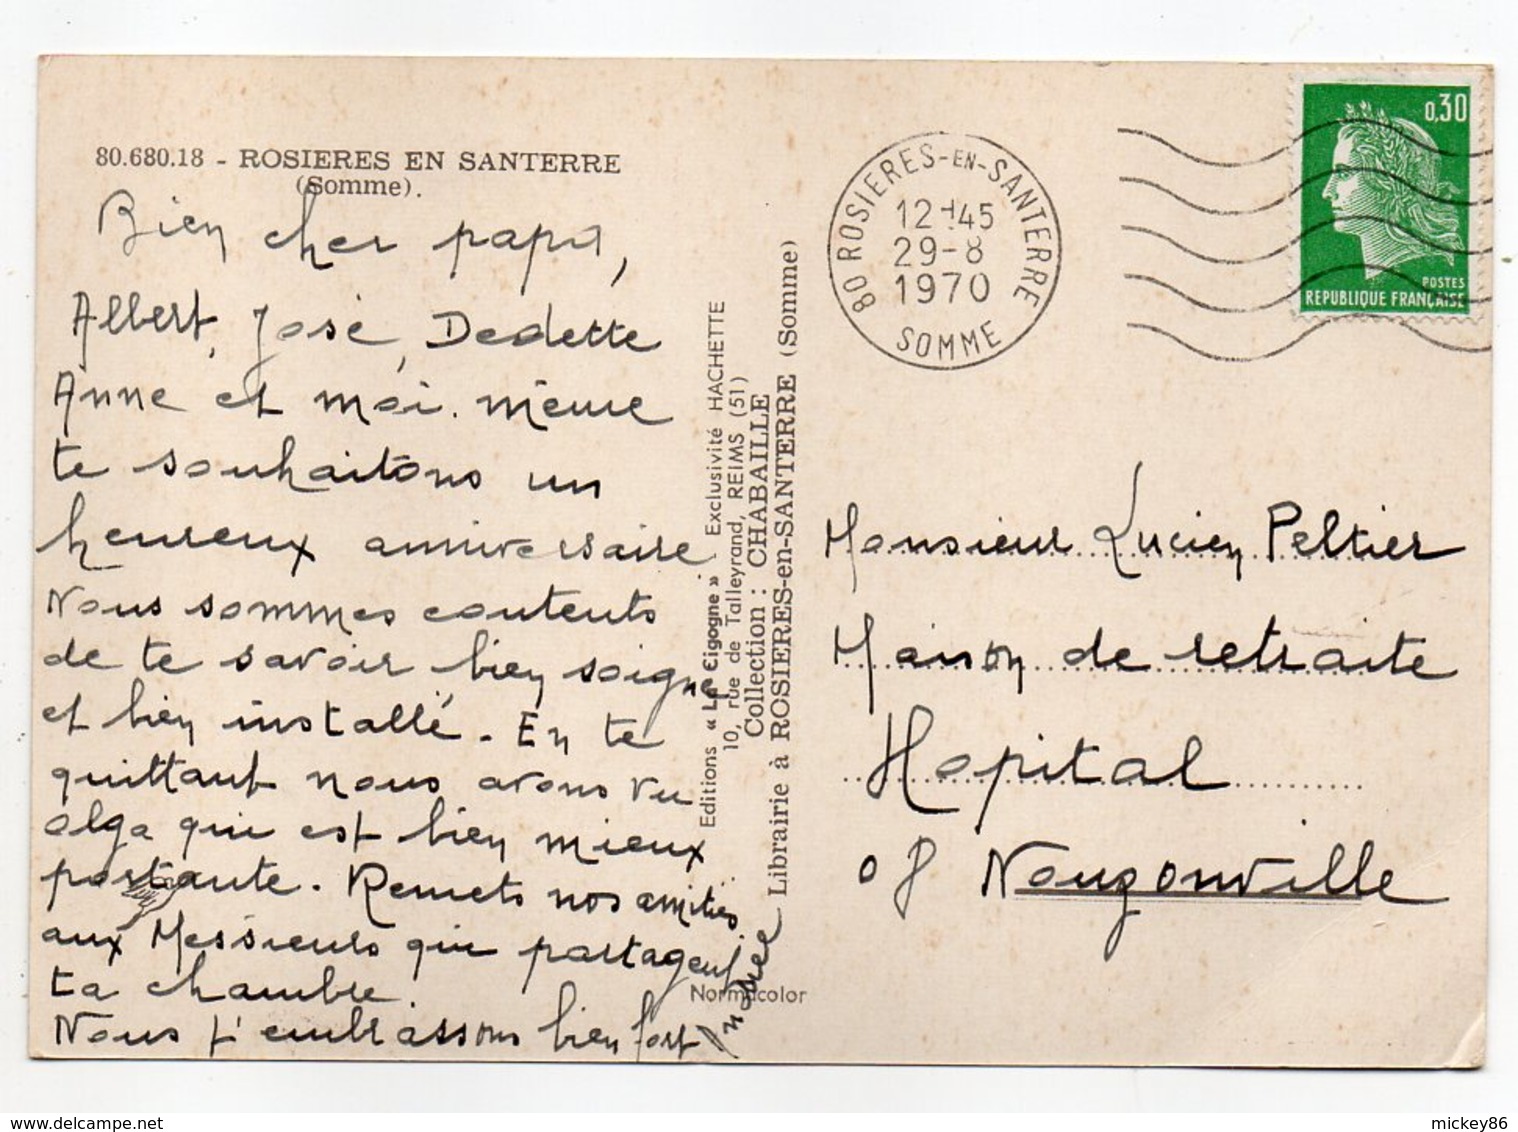 80.680.18 - ROSIERES EN SANTERRE
(Somme).
Bien cher papa,
Albert, José, Dedette
Anne et moi-même
te souhaitons un
heureux anniversaire
Nous sommes contents
de te savoir bien soigné
et bien installé - En te
quittant nous avons vu
Olga qui est bien mieux
portante. Remets nos amitiés
aux Messieurs qui partagent
ta chambre.
Nous t'embrassons bien fort
Editions « La Cigogne » - Exclusivité HACHETTE
10, rue de Talleyrand, REIMS (51)
Collection : CHABAILLE
Librairie à ROSIERES-en-SANTERRE (Somme)
Normacolor
80 ROSIERES-EN-SANTERRE
12H45
29-8
1970
SOMME
0,30
POSTES
REPUBLIQUE FRANÇAISE
Monsieur Lucien Peltier
Maison de retraite
Hopital
08 Nouzonville
mickey86